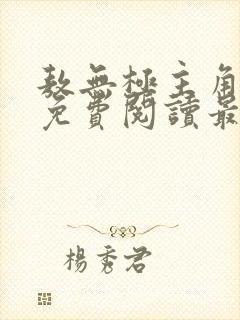 敖無極主角
免費閱讀最
楊秀君